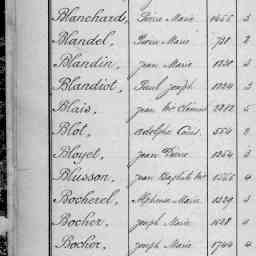 Blanchard, Pierre Marie 1455 3
Blandel, Pierre Marie 728 2
Blandin, Jean Marie 1230 3
Blandiot, Paul Joseph 1224 3
Blais, Jean 2212 5
Blot, Adolphe 554 2
Bloyet, Jean Pierre 1254 3
Blusson, Jean Baptiste 1566 4
Bocherel, Alphonse Marie 1329 3
Bocher, Joseph Marie 1628 4
Bocher, Joseph Marie 1744 4